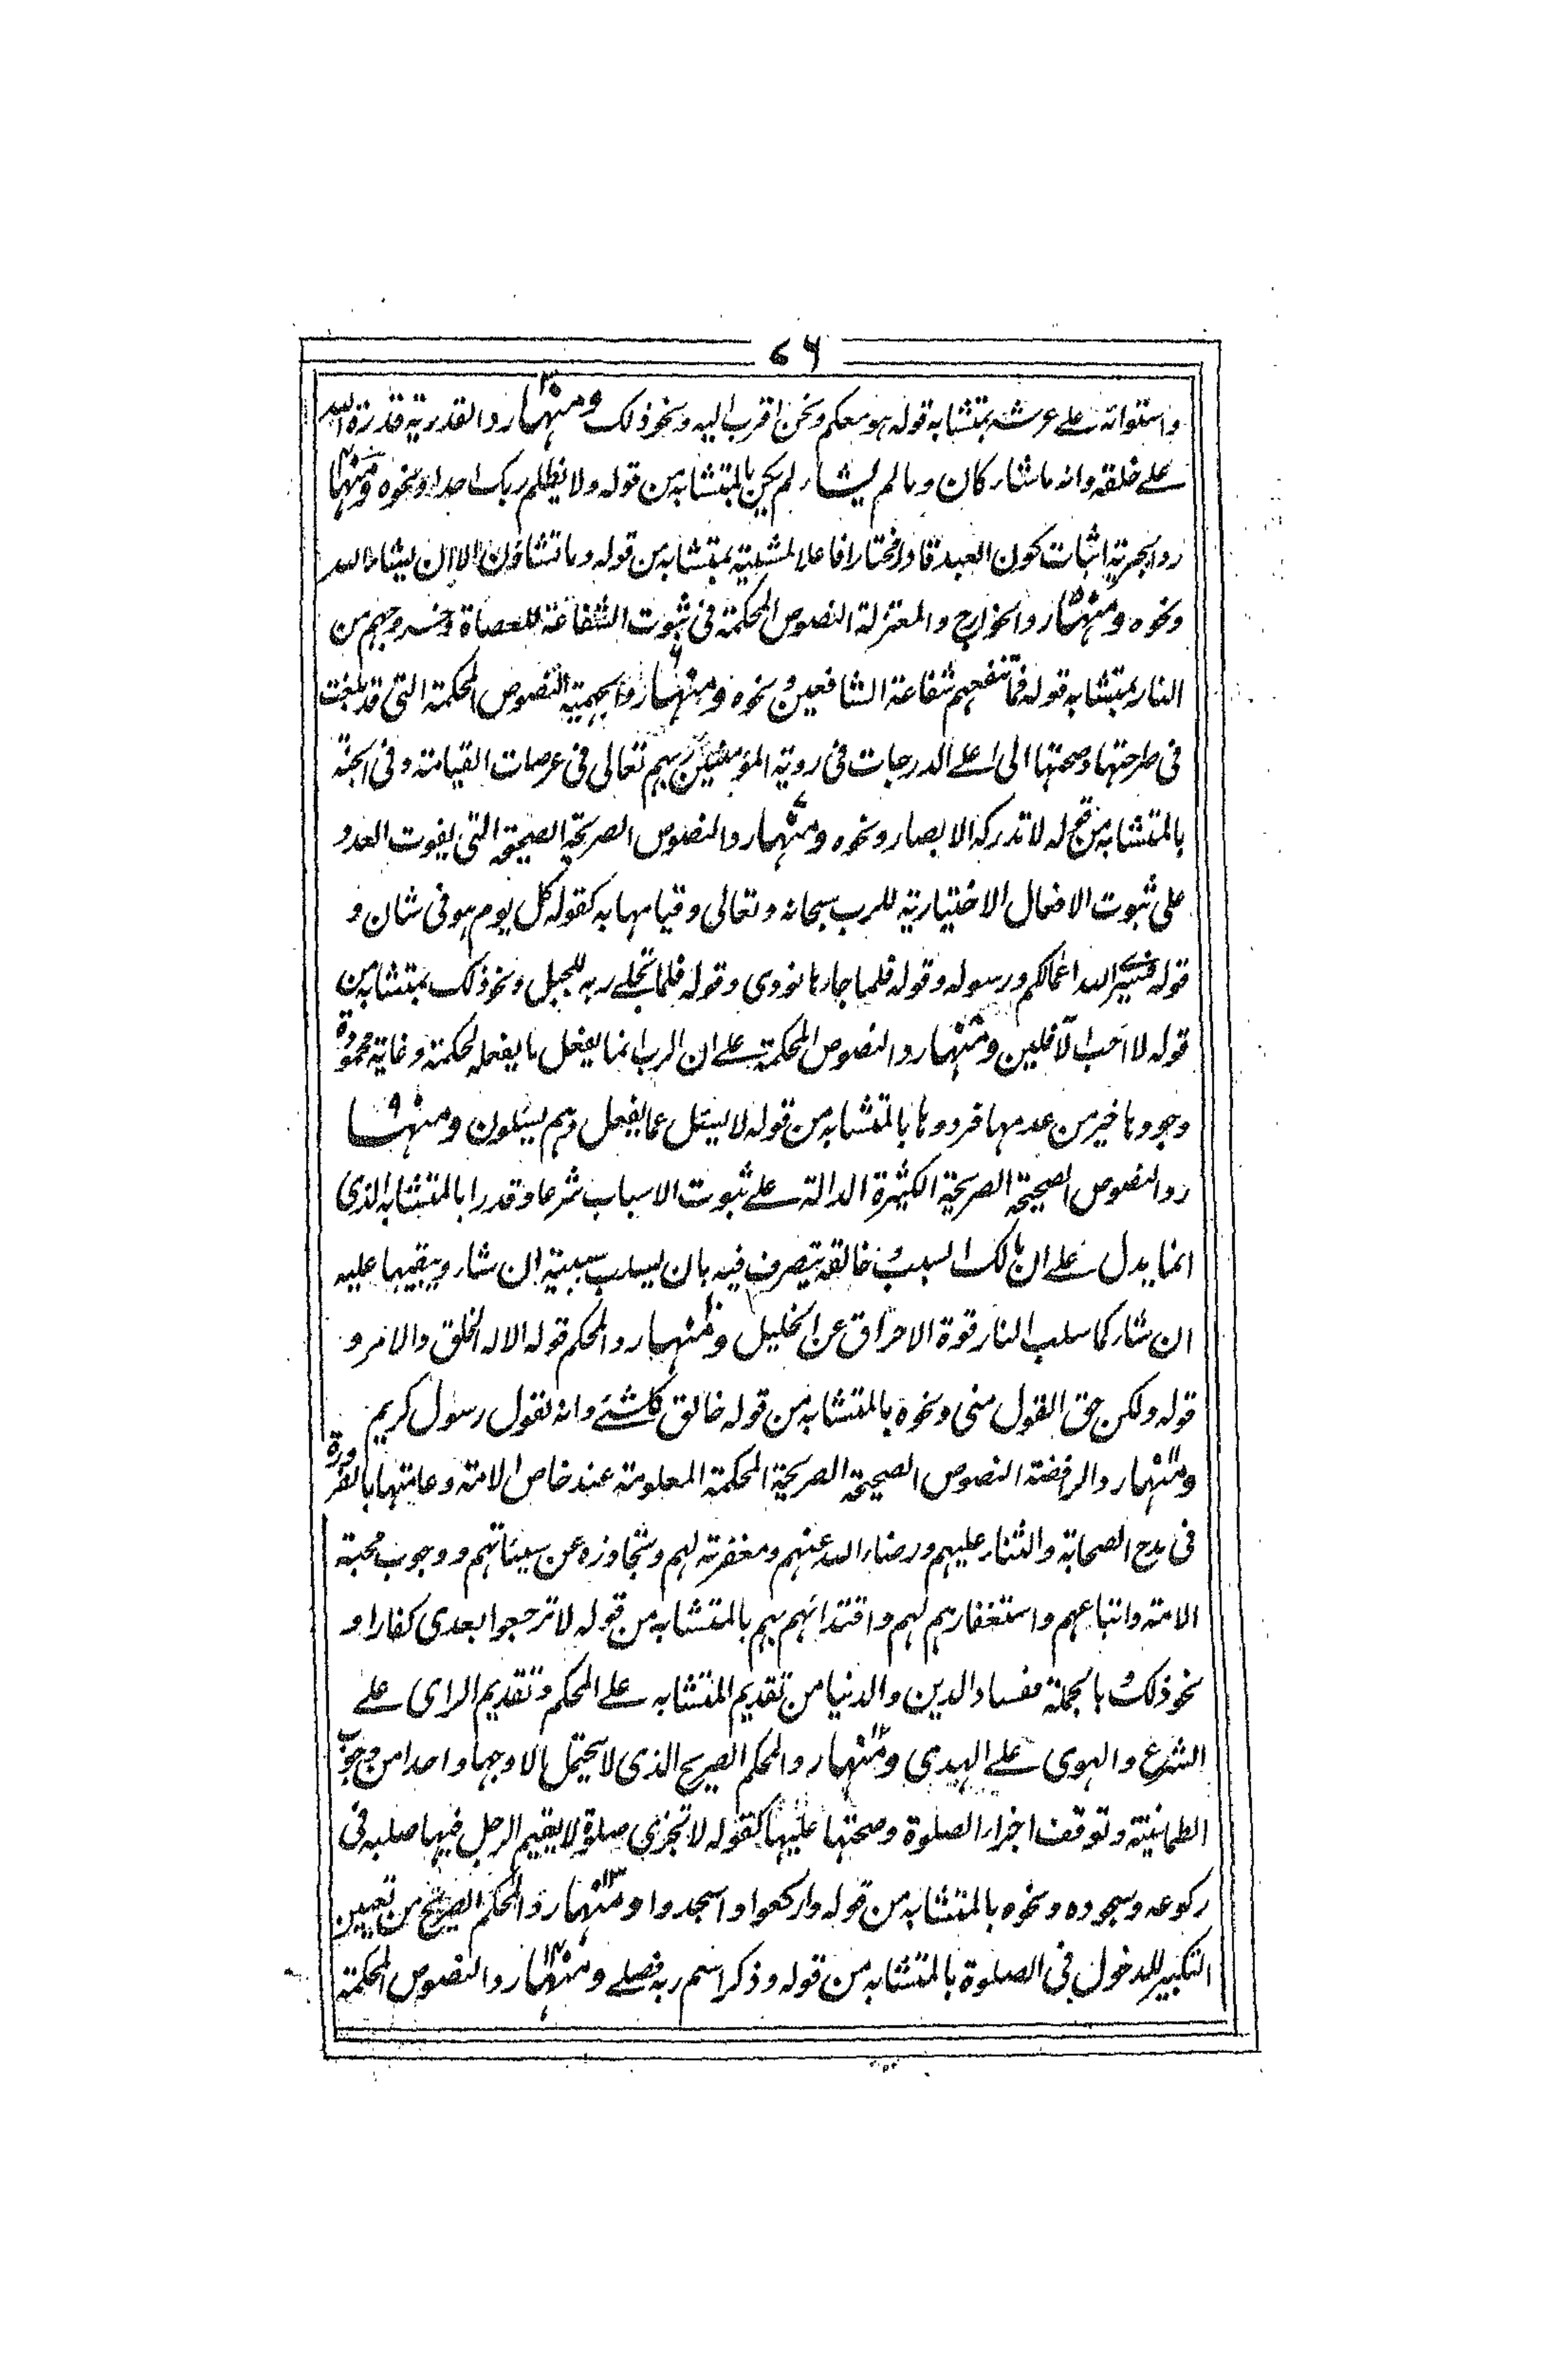 ٧٦
واستوائه على عرشه بمتشابه قوله هو معكم ونحن اقرب اليه ونحو ذلك ومنها٣ رد القدرية قدرة الله
على خلقه وانه ما شاء كان وما لم يشاء لم يكن بالمتشابه من قوله ولا يظلم ربك احدا ونحوه ومنها٤
رد الجبرية اثبات كون العبد قادرا مختارا فاعلا لمشيته بمتشابه من قوله وما تشاؤن الا ان يشاء الله
ونحوه ومنها٥ رد الخوارج والمعتزلة النصوص المحكمة فى ثبوت الشفاعة للعصاة وخروجهم من
النار بمتشابه قوله فما تنفعهم شفاعة الشافعين ونحوه ومنها٦ رد الجهمية النصوص المحكمة التى قد بلغت
فى صراحتها وصحتها الى اعلى الدرجات فى روية المؤمنين ربهم تعالى فى عرصات القيامة وفى الجنة
بالمتشابه من قوله لا تدركه الابصار ونحوه ومنها٧ رد النصوص الصريحة الصحيحة التى يفوت العدد
على ثبوت الافعال الاختيارية للرب سبحانه وتعالى وقيامها به كقوله كل يوم هو فى شان و
قوله فسيرى الله اعمالكم ورسوله وقوله فلما جاءها نودى وقوله فلما تجلى ربه للجبل ونحو ذلك بمتشابه من
قوله لا احب الآفلين ومنها٨ رد النصوص المحكمة على ان الرب انما يفعل ما يفعله لحكمة وغاية محمودة
وجودها خير من عدمها فردوها بالمتشابه من قوله لا يسئل عما يفعل وهم يسئلون ومنها٩
رد النصوص الصحيحة الصريحة الكثيرة الدالة على ثبوت الاسباب شرعا وقدرا بالمتشابه الذى
انما يدل على ان مالك السبب وخالقه يتصرف فيه بان يسلب سببيته ان شاء ويبقيها عليه
ان شاء كما سلب النار قوة الاحراق عن الخليل ومنها١٠ رد المحكم قوله الا له الخلق والامر و
قوله ولكن حق القول منى ونحوه بالمتشابه من قوله خالق كل شئ وانه لقول رسول كريم
ومنها١١ رد الرفضة النصوص الصحيحة الصريحة المحكمة المعلومة عند خاص الامة وعامتها بالضرورة
فى مدح الصحابة والثناء عليهم ورضاء الله عنهم ومغفرته لهم وتجاوزه عن سيئاتهم ووجوب محبة
الامة واتباعهم واستغفارهم لهم واقتدائهم بهم بالمتشابه من قوله لا ترجعوا بعدى كفارا و
نحو ذلك بالجملة مفساد الدين والدنيا من تقديم المتشابه على المحكم وتقديم الراى على
الشرع والهوى على الهدى ومنها١٢ رد المحكم الصريح الذى لا يحتمل الا وجها واحدا من وجوب
الطمانينة وتوقف اجزاء الصلوة وصحتها عليها كقوله لا تجزى صلوة لا يقيم الرجل فيها صلبه فى
ركوعه وسجوده ونحوه بالمتشابه من قوله واركعوا واسجدوا ومنها١٣ رد المحكم الصريح من تعيين
التكبير للدخول فى الصلوة بالمتشابه من قوله وذكر اسم ربه فصلى ومنها١٤ رد النصوص المحكمة